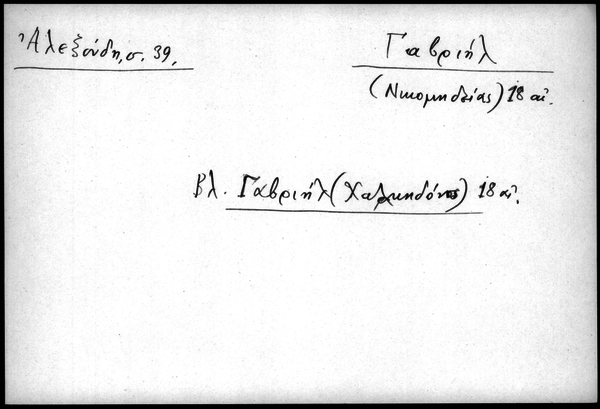 Ἀλεξούδη, σ. 39.
Γαβριήλ
(Νικομηδείας) 18 αἰ.
Βλ. Γαβριήλ (Χαλκηδόνος) 18 αἰ.